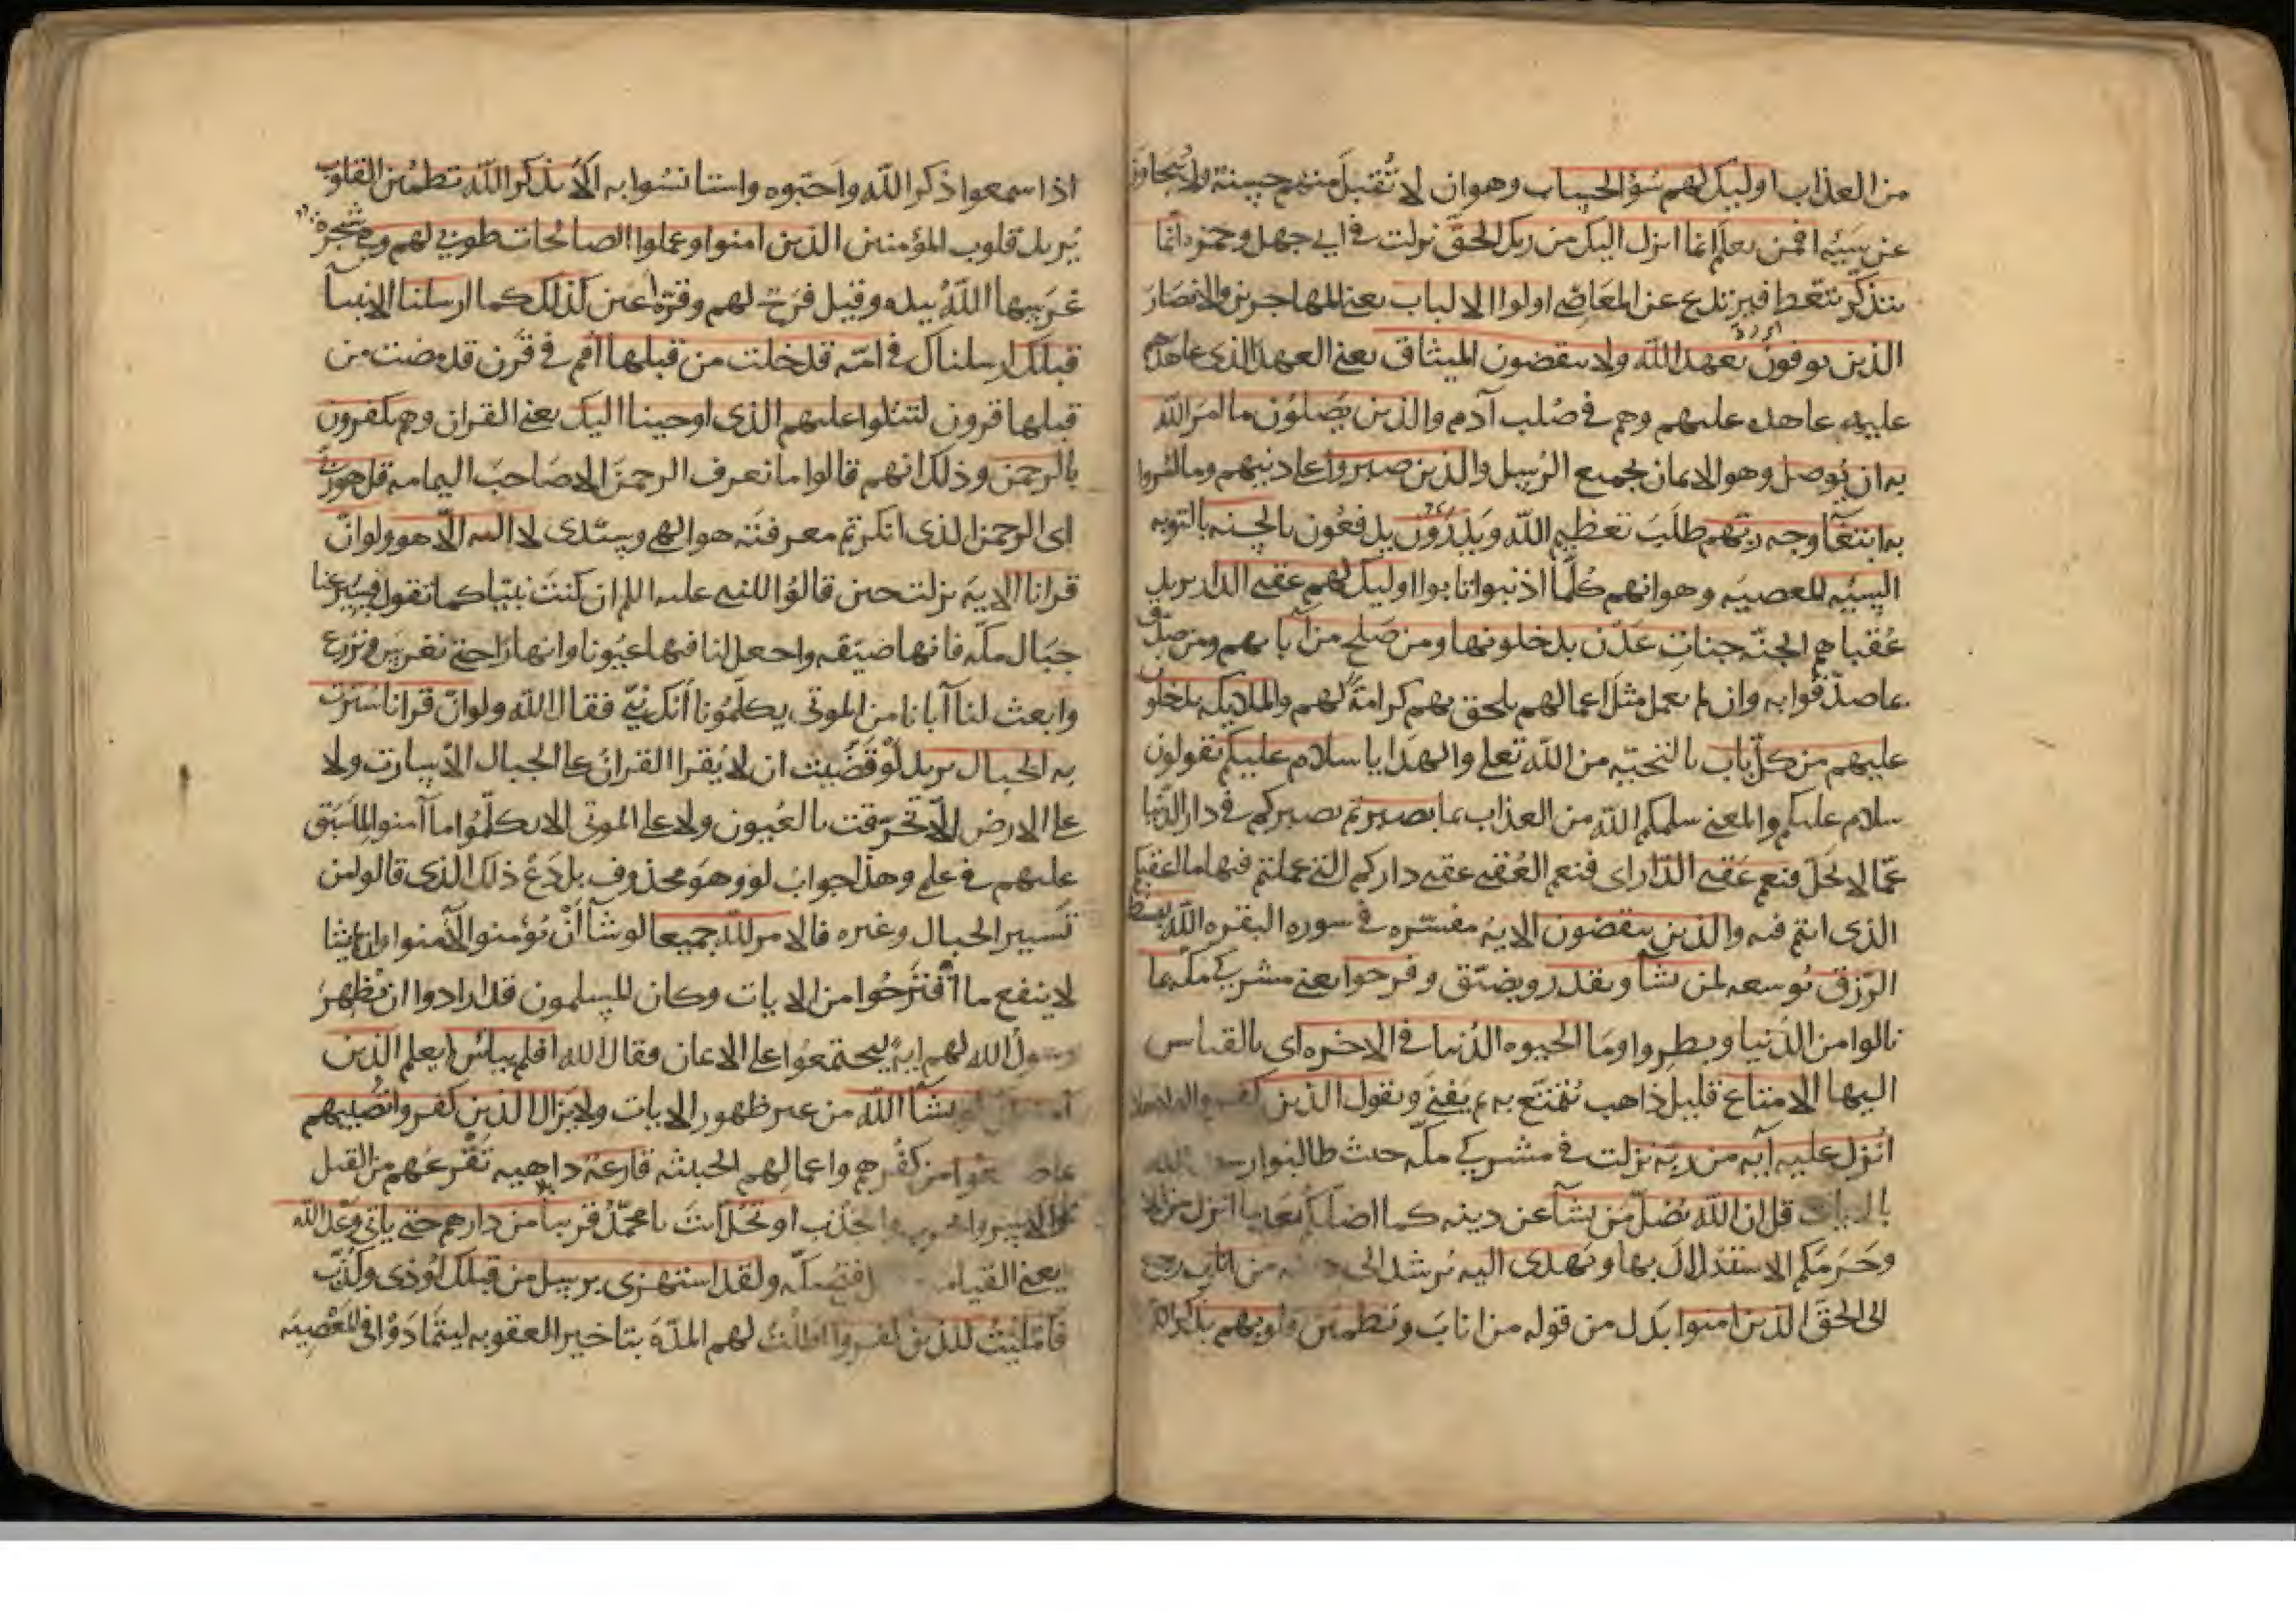 من العذاب اوليك لهم سؤ الحساب وهو ان لا تُقبلَ منهم حسنة ولا يُتجاوز
عن سَيّه افمن يعلم انما انزل اليك من ربك الحقّ نزلت في ابي جهل وحمزة انما
يتذكّر يتّعظ فيرتدع عن المعَاصي اولوا الالباب يعني المهاجرين والانصَار
الذين يوفون بعهد الله ولا ينقضون الميثاق يعني العهد الذي عاهدهم
عليه عاهده عليهم وهم في صُلب آدم والذين يَصِلوُن ما امَر الله
به ان يُوصل وهو الايمان بجميع الرُسل والذين صبروا على دينهم وما امروا
به ابتغَآ وجه ربّهم طلَبَ تعظيم الله وَيَدْرَؤن يدفعُون بالحسنه بالتوبه
السيّه المعصيَه وهو انهم كُلّما اذنبوا تابوا اوليك لهم عقبى الدار يريد
عُقباهم الجنّه جناتِ عَدْن يدخلونها ومن صَلح من آبايهم ومن صدّق
بما صدّقوا به وان لم يعمل مثلَ اعمالهم يلحق بهم كرامةً لهم والملايكه يدخلون
عليهم من كلّ باب بالتحيّه من الله تعلى والهدايا سلام عليكم يقولون
سلام عليكم والمعنى سلمكم الله من العذاب بما صبرتم بصبركم في دار الدنيا
عمّا لا يَحلّ فنعم عقبى الدّار اى فنعم العُقبى عقبى داركم التى عملتم فيها ما اعقبكم
الذى انتم فيه والذين ينقضون الايه مفسّره في سوره البقره الله يبسط
الرّزق يُوسعه لمن يشآ ويقدر ويضيّق وفرحوا يعنى مشركي مكّه بما
نالوا من الدّنيا وبطروا ومَا الحيوه الدُنيا في الاخره اى بالقياس
اليها الا متاع قليل ذاهب يُتمتّع به ثم يَفنىَ ويقول الذين كفروا لولا
اُنزل عليه آيه من ربّه نزلت في مشركي مكّه حيث طالبُوا رسول الله
بالايات قل ان الله يُضلّ مَن يشآ عن دينه كما اضلكم بَعد ما انزل من الايات
وحَرَمكم الاستدلال بها ويَهدى اليه يُرشد الى دينه من اناب رجع
الى الحقّ الذين امنوا بدَل من قوله من انابَ وتطمئن قلوبهم بذكر الله
اذا سمعوا ذكر الله واحَبّوه واستانسُوا به اَلا بذكر الله تطمئن القلوب
يُريد قلوب المؤمنين الذين امنوا وعملوا الصالحات طوبى لهم وهي شجرةٌ
غرَسها اللهُ بيده وقيل فرَح لهم وقرّة اعين كذلك كما ارسلنا الانبيآ
قبلك ارسلناك في امّه قد خلت من قبلها امم في قَرْن قد مضت من
قبلها قرون لتتلوا عليهم الذى اوحينا اليك يعنى القران وهم يكفرون
بالرحمن وذلك انهم قالوا ما نعرف الرحمنَ الا صَاحبَ اليمامه قل هو ربّى
اى الرحمن الذى انكرتم معرفتَه هو الهى وسيّدى لا اله الّا هو ولو انّ
قرانا الايه نزلت حين قالوُا للنبى عليه السلم ان كنتَ نبيّا كما تقول فسيّر عنا
جبَال مكّه فانها ضيّقه واجعل لنا فيها عيُونا وانهارًا حتى نغرسَ ونزرع
وابعث لنا آبانا من الموتى يكلّمُونا اَنك نَبىّ فقال الله ولو انّ قرانا سُيّرت
به الجبال يريد لو قضَيتُ ان لا يُقرا القرانُ على الجبال الّا سارت ولا
على الارض الّا تخرّقت بالعُيون ولا على الموتى الا تكلّمُوا ما آمنوا لما سَبَق
عليهم في علمى وهذا جوابُ لو وهو محذوف بل دَع ذلك الذى قالوا من
تَسيير الجبال وغيره فالامر لله جميعا لو شآ اَنْ يُؤمنوا لآمنوا وان لم يشا
لا ينفع ما اقترَحُوا من الايات وكان المسلمون قد ارادوا ان يُظهرَ
رسولُ الله لهم ايةً ليجتمعُوا على الايمان فقال الله افلم يياس يعلم الذين
آمنوا ان لو يشآ الله من غير ظهور الايات ولا يَزال الذين كفروا تصُيبهم
بما صنعوا من كفُرهم واعمالهم الخبيثه قارعة داهيه تَقْرعُهم من القتل
والاسر والحرب والجدْب او تَحُلّ انتَ يا محمّدُ قريبا من دارهم حتى ياتى وَعْد الله
يعنى القيامه فتح مكّه ولقد استهزى برسل من قبلك اوُذى وكُذّب
فامليتُ للذين كفروا اطلْتُ لهم المدّهَ بتاخير العقوبه ليتمَادَوْا في المَعْصِيَه